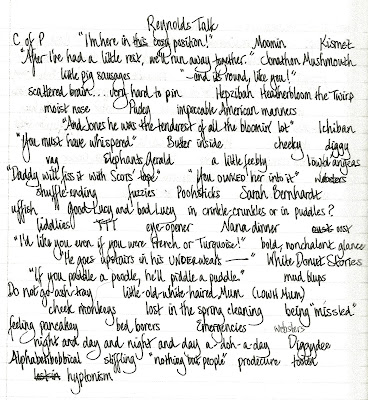 Reynolds Talk
C of P "I'm here in this cosy position!" Moomin Kismet
"After I've had a little rest, we'll run away together." Jonathan Mushmouth
little pig sausages "—and it's round, like you!"
scattered brain... very hard to pin Hepzibah Heatherbloom the Twirp
moist nose Pudey impeccable American manners
"And Jones he was the tenderest of all the bloomin' lot" Ichiban
"You must have whispered." Butler inside cheeky diggy
vag Elephant's Gerald a little feebly
"Daddy will fix it with Scots' tape" "You ounked her into it" websters
shuffle-ending fuzzies Poohsticks Sarah Bernhardt
uffish good Lucy and bad Lucy in crinkle-crunkles or in puddles?
tiddlies TTT eye-opener Nana dinner
"I'd like you even if you were French or Turquoise!" bold, nonchalent glance
"He goes upstairs in his UNDERwears —" White Donut Stories
"If you peddle a poodle, he'll piddle a puddle." mud blups
Do not go-ash-tray little-old-white-haired Mum (LOWH Mum)
cheek monkeys lost in the spring cleaning being "missled"
feeling pancakey bed borers Emergencies websters
night and day and night and day, a-doh-a-day Digpydee
Alphabetibobbical stiffling "nothing but people" prodicture footed
hyptonism